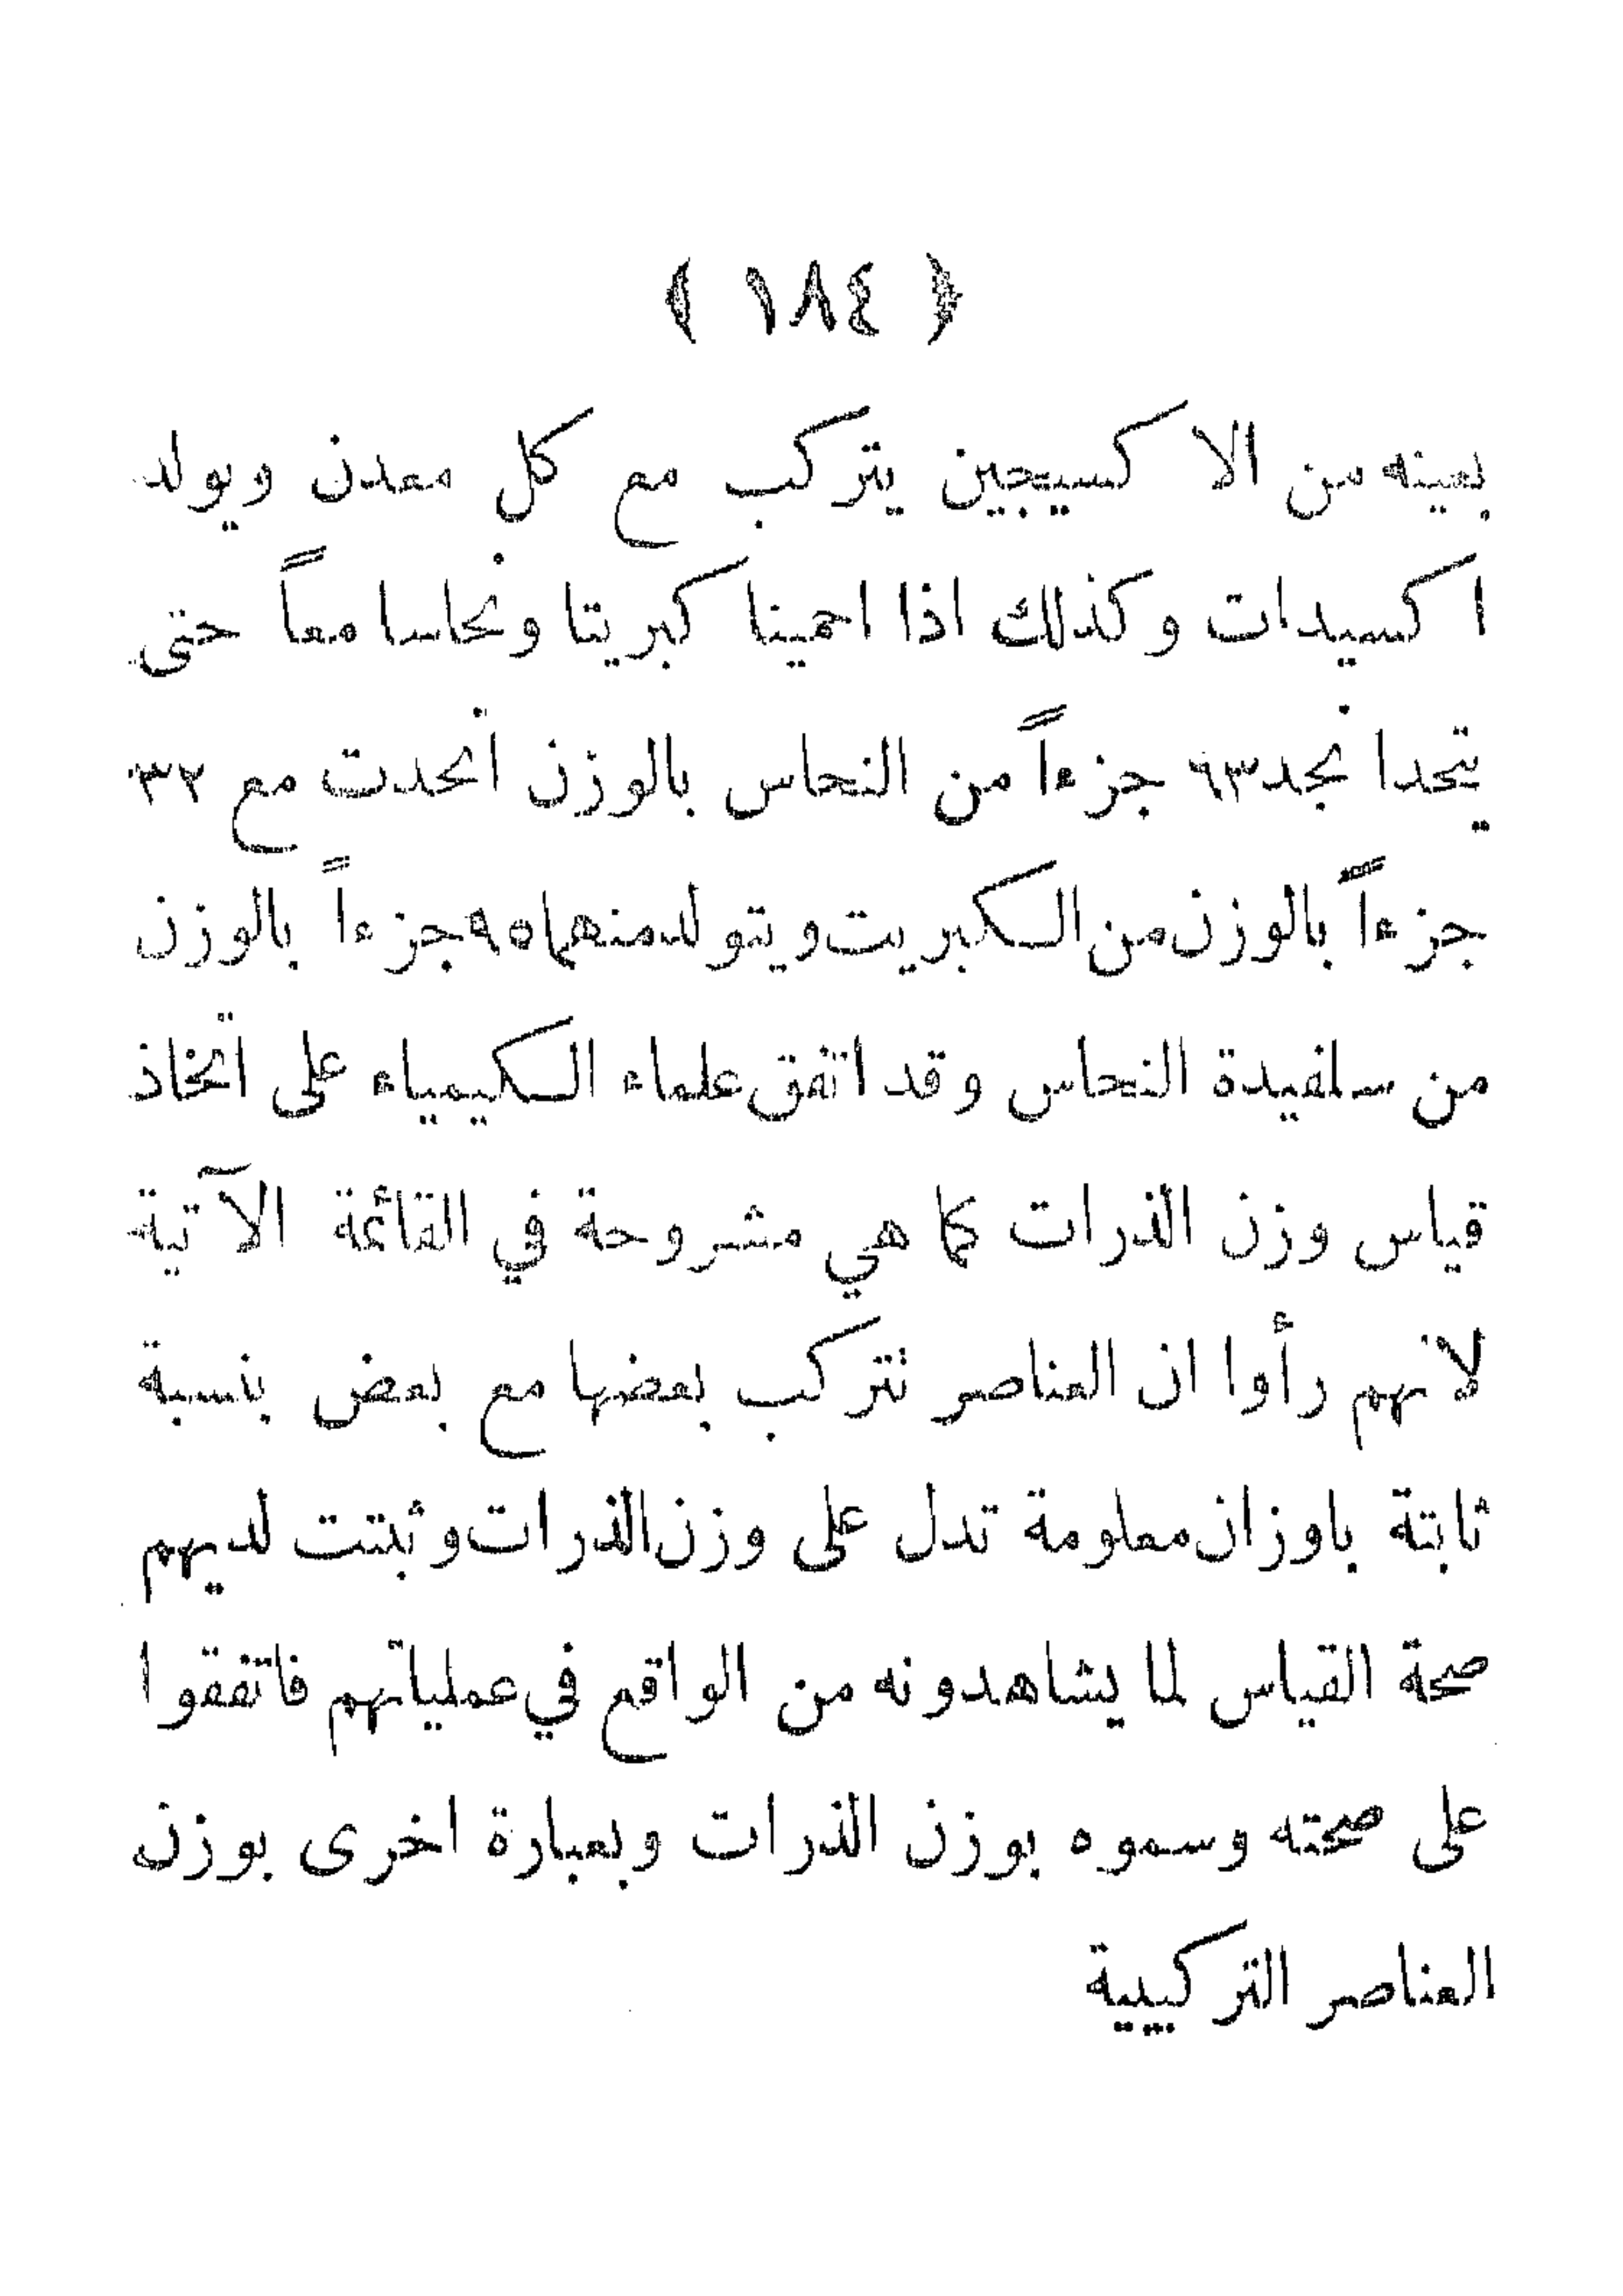 ﴿ ١٨٤ ﴾
بعينه من الاكسيجين يتركب مع كل معدن ويولد
اكسيدات وكذلك اذا احمينا كبريتا ونحاسا معاً حتى
يتحدا نجد ٦٣ جزءاً من النحاس بالوزن اتحدت مع ٣٢
جزءاً بالوزن من الكبريت ويتولد منهما ٩٥ جزءاً بالوزن
من سلفيدة النحاس وقد اتفق علماء الكيمياء على اتخاذ
قياس وزن الذرات كما هي مشروحة في القائمة الآتية
لانهم رأوا ان العناصر تتركب بعضها مع بعض بنسبة
ثابتة باوزان معلومة تدل على وزن الذرات وثبتت لديهم
صحة القياس لما يشاهدونه من الواقع في عملياتهم فاتفقوا
على صحته وسموه بوزن الذرات وبعبارة اخرى بوزن
العناصر التركيبية